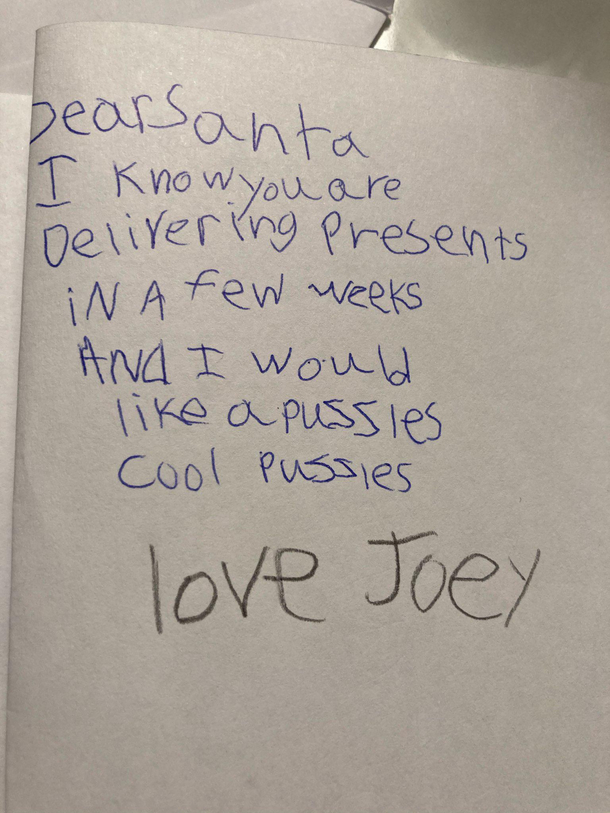 Dear Santa
I know you are
Delivering presents
iN A few weeks
ANd I would
like a pussles
cool pussies
love Joey